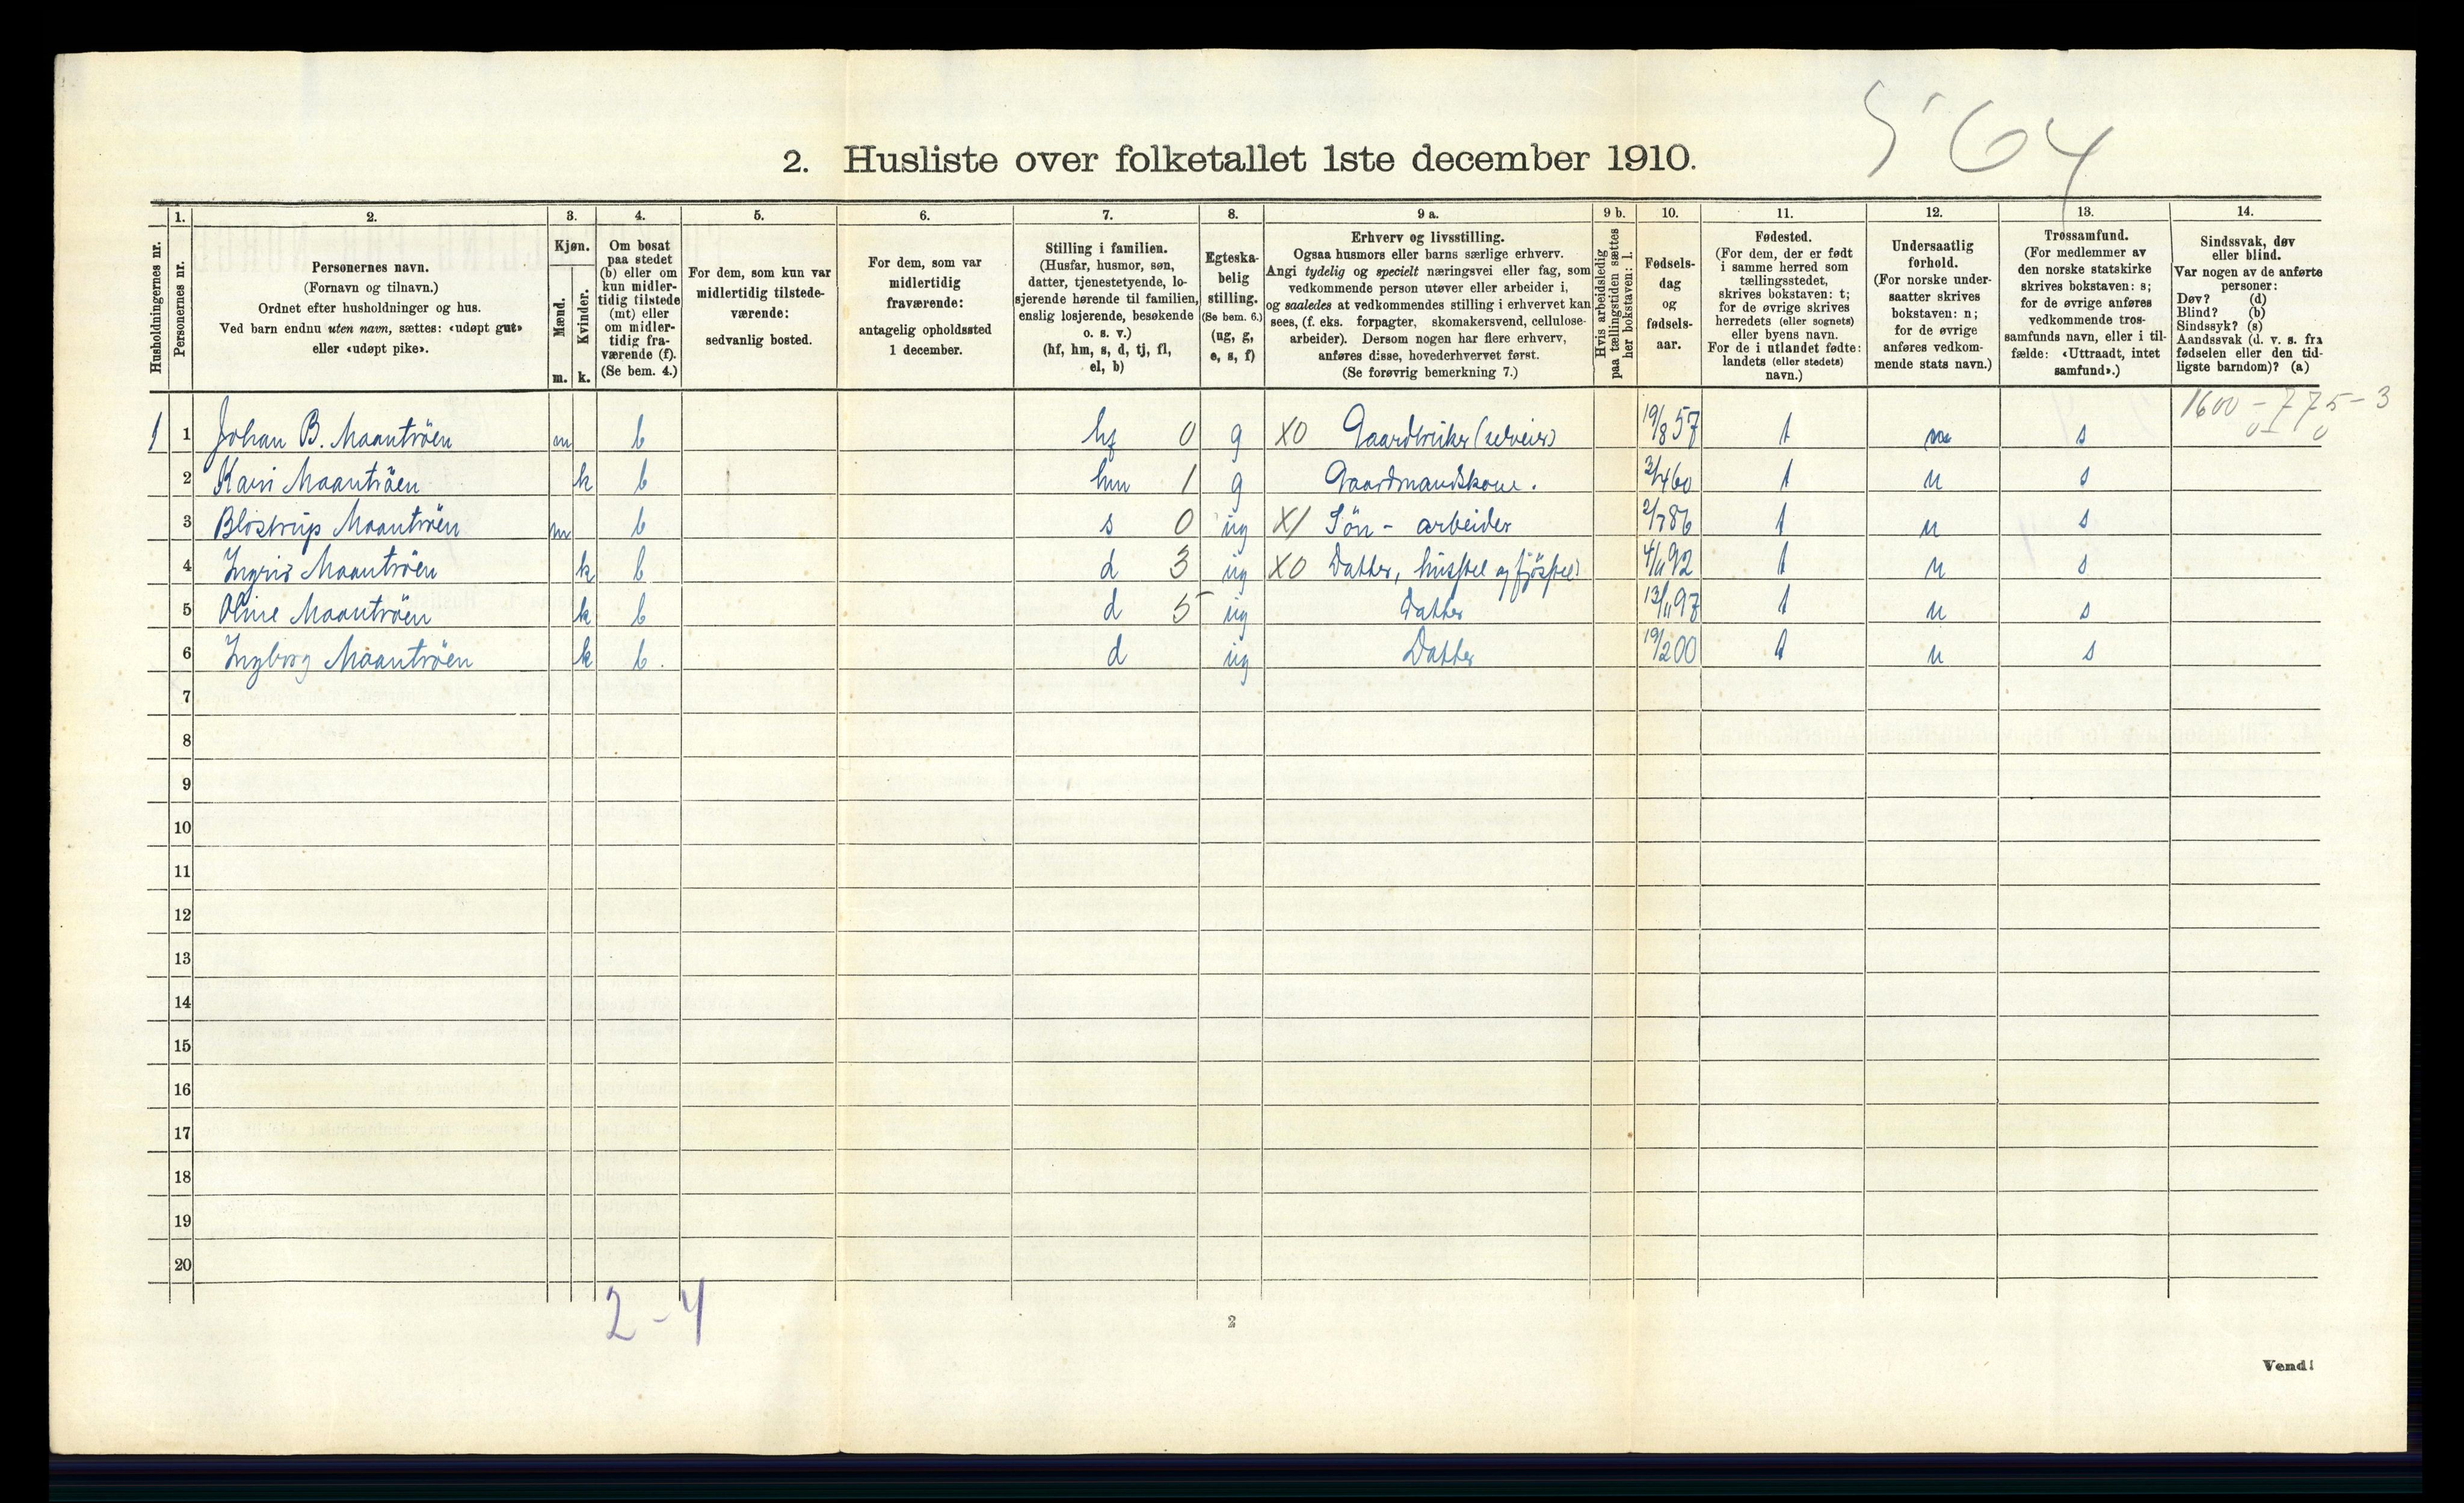 564
2. Husliste over folketallet 1ste december 1910.
Husholdningernes nr.
1.
Personernes nr.
2.
Personernes navn.
(Fornavn og tilnavn.)
Ordnet efter husholdninger og hus.
Ved barn endnu uten navn, sættes: «udøpt gut»
eller «udøpt pike».
3.
Kjøn.
Mænd.
Kvinder.
m. k.
4.
Om bosat
paa stedet
(b) eller om
kun midler-
tidig tilstede
(mt) eller
om midler-
tidig fra-
værende (f).
(Se bem. 4.)
5.
For dem, som kun var
midlertidig tilstede-
værende:
sedvanlig bosted.
6.
For dem, som var
midlertidig
fraværende:
antagelig opholdssted
1 december.
7.
Stilling i familien.
(Husfar, husmor, søn,
datter, tjenestetyende, lo-
sjerende hørende til familien,
enslig losjerende, besøkende
o. s. v.)
(hf, hm, s, d, tj, fl,
el, b)
8.
Egteska-
belig
stilling.
(Se bem. 6.)
(ug, g,
e, s, f)
9 a.
Erhverv og livsstilling.
Ogsaa husmors eller barns særlige erhverv.
Angi tydelig og specielt næringsvei eller fag, som
vedkommende person utøver eller arbeider i,
og saaledes at vedkommendes stilling i erhvervet kan
sees, (f. eks. forpagter, skomakersvend, cellulose-
arbeider). Dersom nogen har flere erhverv,
anføres disse, hovederhvervet først.
(Se forøvrig bemerkning 7.)
9 b.
Hvis arbeidsledig
paa tællingstiden sættes
her bokstaven: l.
10.
Fødsels-
dag
og
fødsels-
aar.
11.
Fødested.
(For dem, der er født
i samme herred som
tællingsstedet,
skrives bokstaven: t;
for de øvrige skrives
herredets (eller sognets)
eller byens navn.
For de i utlandet fødte:
landets (eller stedets)
navn.)
12.
Undersaatlig
forhold.
(For norske under-
saatter skrives
bokstaven: n;
for de øvrige
anføres vedkom-
mende stats navn.)
13.
Trossamfund.
(For medlemmer av
den norske statskirke
skrives bokstaven: s;
for de øvrige anføres
vedkommende tros-
samfunds navn, eller i til-
fælde: «Uttraadt, intet
samfund».)
14.
Sindssvak, døv
eller blind.
Var nogen av de anførte
personer:
Døv? (d)
Blind? (b)
Sindssyk? (s)
Aandssvak (d. v. s. fra
fødselen eller den tid-
ligste barndom)? (a)
1600 - 775 - 3
1 1 Johan B. Maantröen m b hf 0 g X0 Gaardbruker (selveier) 19/8 57 t n s
2 Kari Maantröen k b hm 1 g Gaardmandskone. 3/4 60 t n s
3 Blostrup Maantröen m b s 0 ug X1 Sön - arbeider 2/7 86 t n s
4 Ingrid Maantröen k b d 3 ug X0 Datter, husstel og fjösstel 4/11 92 t n s
5 Oline Maantröen k b d 5 ug Datter 13/11 97 t n s
6 Ingborg Maantröen k b d ug Datter 19/2 00 t n s
7
8
9
10
11
12
13
14
15
16
17
18
19
20
2-4
2
Vend!